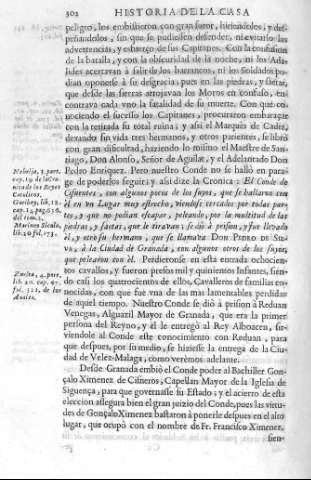 302 HISTORIA DE LA CASA
peligro, los embistieron con gran furor, hiriendolos, y des-
peñandolos, sin que se pudiessen defender, ni evitarlo las
advertencias, y esfuerço de sus Capitanes. Con la confusion
de la batalla, y con la obscuridad de la noche, ni los Ada-
lides acertavan à salir de los barrancos, ni los Soldados po-
dian oponerse à su desgracia; pues en las piedras, y saetas,
que desde las sierras arrojavan los Moros en confuso, en-
contrava cada vno la fatalidad de su muerte. Con que co-
nociendo el sucesso los Capitanes, procuraron embaraçar
con la retirada su total ruina; y assi el Marquès de Cadiz,
dexando sin vida tres hermanos, y otros parientes, se librò
con gran dificultad, haziendo lo mismo el Maestre de San-
tiago, Don Alonso, Señor de Aguilar, y el Adelantado Don
Pedro Enriquez. Pero nuestro Conde no se hallò en para-
ge de poderlos seguir; y assi dize la Cronica: El Conde de
Cifuentes, con algunas gentes de las suyas, que se hallaron con
èl en vn Lugar muy estrecho, viendose cercados por todas par-
tes, y que no podian escapar, peleando, por la multitud de las
piedras, y saetas, que le tiravan; se diò à prision, y fue llevado
èl, y otro su hermano, que se llamava DON PEDRO DE SIL-
VA, à la Ciudad de Granada, con algunos otros de los suyos,
que pelearon con èl. Perdieronse en esta entrada ochocien-
tos cavallos, y fueron presos mil y quinientos Infantes, sien-
do casi los quatrocientos de ellos, Cavalleros de familias co-
nocidas, con que fue vna de las mas lamentables perdidas
de aquel tiempo. Nuestro Conde se diò à prision à Reduan
Venegas, Alguazil Mayor de Granada, que era la primer
persona del Reyno, y èl le entregò al Rey Alboacen, sir-
viendole al Conde este conocimiento con Reduan, para
que despues, por su medio, se hiziesse la entrega de la Ciu-
dad de Velez-Malaga, como verèmos adelante.
Desde Granada embiò el Conde poder al Bachiller Gon-
çalo Ximenez de Cisneros, Capellan Mayor de la Iglesia de
Siguença, para que governasse su Estado; y el acierto de esta
eleccion assegura bien el gran juizio del Conde, pues las virtu-
des de Gonçalo Ximenez bastaron à ponerle despues en el alto
lugar, que ocupò con el nombre de Fr. Francisco Ximenez,
sien-
Nebrija, 2. part.
cap. 19. de la Cro-
nica de los Reyes
Catolicos.
Garibay, lib. 18.
cap. 24. pag. 636.
del tom. 2.
Marineo Siculo,
lib. 20 fol. 173.
Zurita, 4. part.
lib. 20. cap. 47.
fol. 322. de los
Anales.